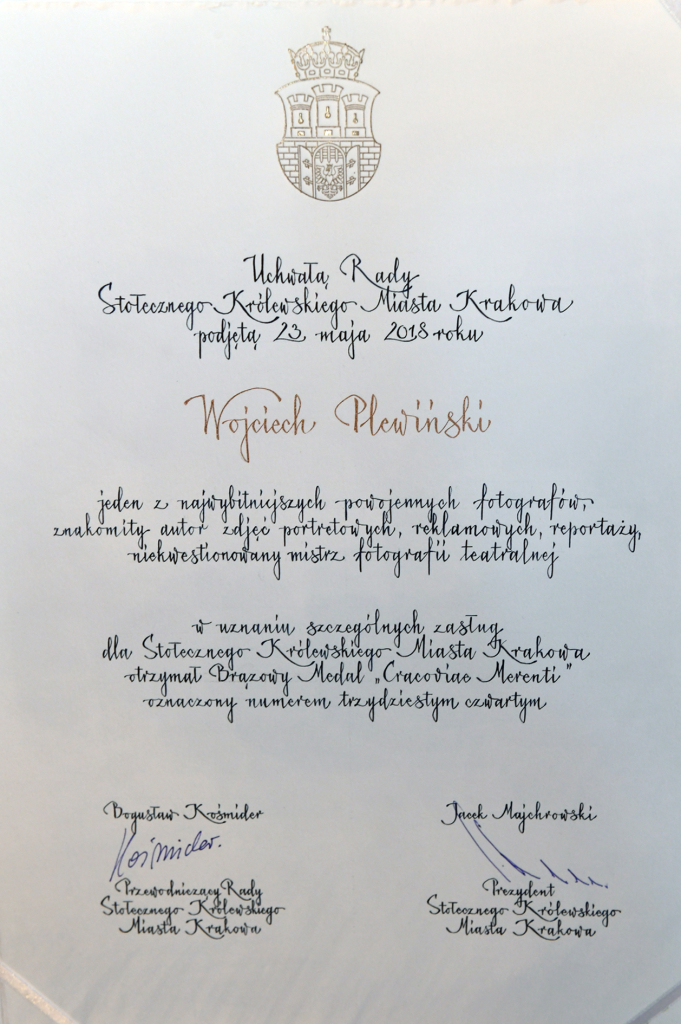 Uchwałą Rady
Stołecznego Królewskiego Miasta Krakowa
podjętą 23 maja 2018 roku
Wojciech Plewiński
jeden z najwybitniejszych powojennych fotografów,
znakomity autor zdjęć portretowych, reklamowych, reportaży,
niekwestionowany mistrz fotografii teatralnej
w uznaniu szczególnych zasług
dla Stołecznego Królewskiego Miasta Krakowa
otrzymał Brązowy Medal „Cracoviae Merenti”
oznaczony numerem trzydziestym czwartym
Bogusław Kośmider
Kośmider.
Przewodniczący Rady
Stołecznego Królewskiego
Miasta Krakowa
Jacek Majchrowski
Prezydent
Stołecznego Królewskiego
Miasta Krakowa